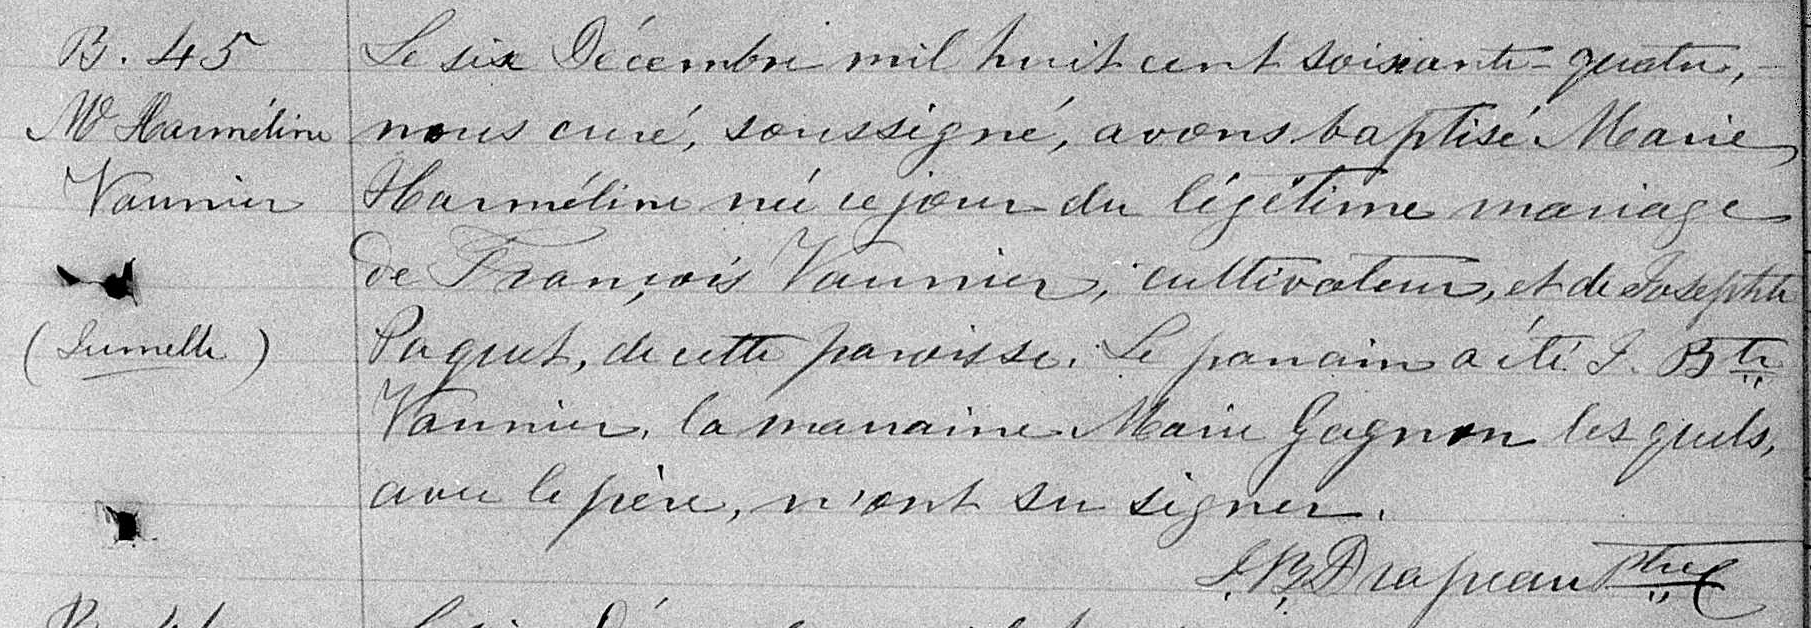 B. 45
M. Harméline
Vannier
(Jumelle)
Le six Décembre mil huit cent soixante-quatre,
nous curé, soussigné, avons baptisé Marie
Harméline née ce jour du légitime mariage
de François Vannier, cultivateur, et de Josephte
Paquet, de cette paroisse. Le parrain a été J. Bte
Vannier, la marraine Marie Gagnon les quels,
avec le père, n'ont su signer.
J. B. Drapeau Ptre